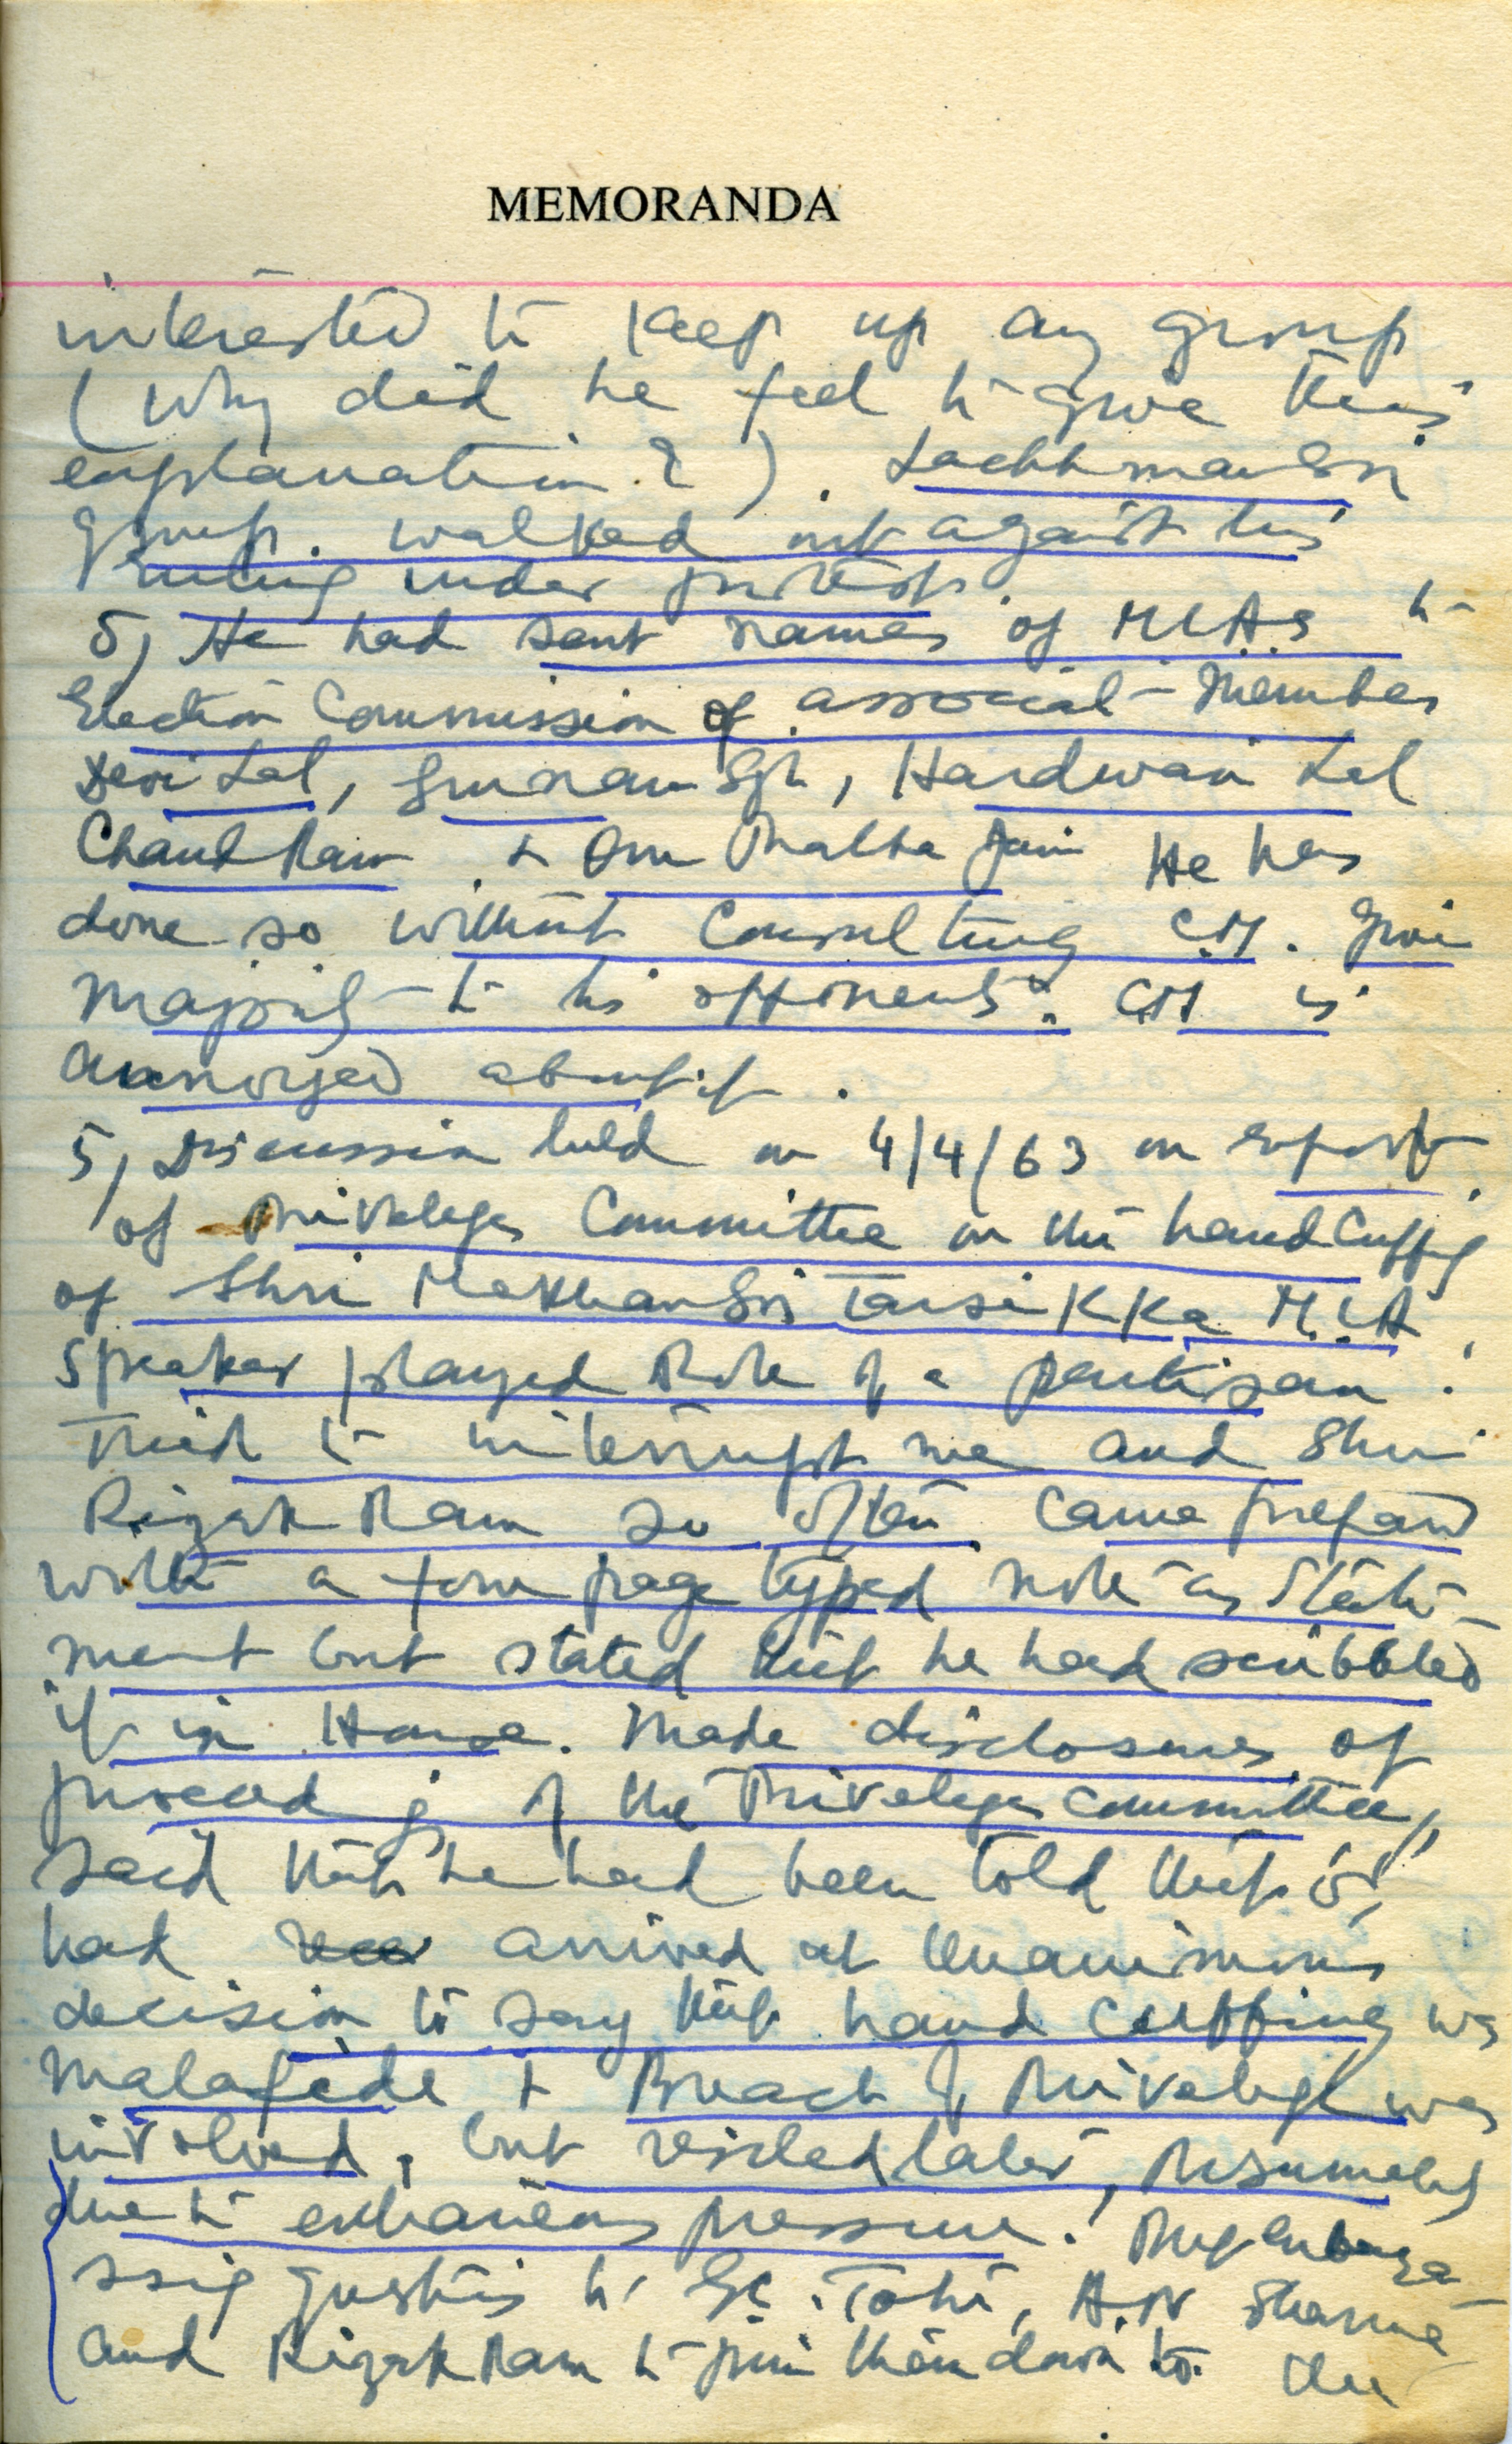 MEMORANDA
interested to keep up any group
(Why did he feel to give this
explanation?). Lachhman Sn
group. walked out against his
ruling under protest.
5, He had sent names of MLAs to
Election Commission of associate Member
Devi Lal, Gurnam Sgh, Hardwari Lal
Chand Ram & Om Prabha Jain He has
done so without Consulting C.M. Give
majority to his opponents. CM is
annoyed about it.
5, Discussion held on 4/4/63 on report
of Privelege Committee on the handcuffing
of Shri Makhan Sn Tarsikka M.L.A.
Speaker played Role of a partisan.
Tried to interrupt me and Shri
Rizak Ram so often. Came prepared
with a four page typed note as State-
ment but stated that he had scribbled
it in House. Made disclosures of
proceedg of the Privelege committee,
said that he had been told that
had arrived at Unanimous
decision to say that hand cuffing was
malafide & Breach of Privelege was
involved, but resiled later, Presumably
due to extraneous pressure. Put
questions to Sr. Tohi, A.N Sharma
and Rizak Ram to pin them down to the